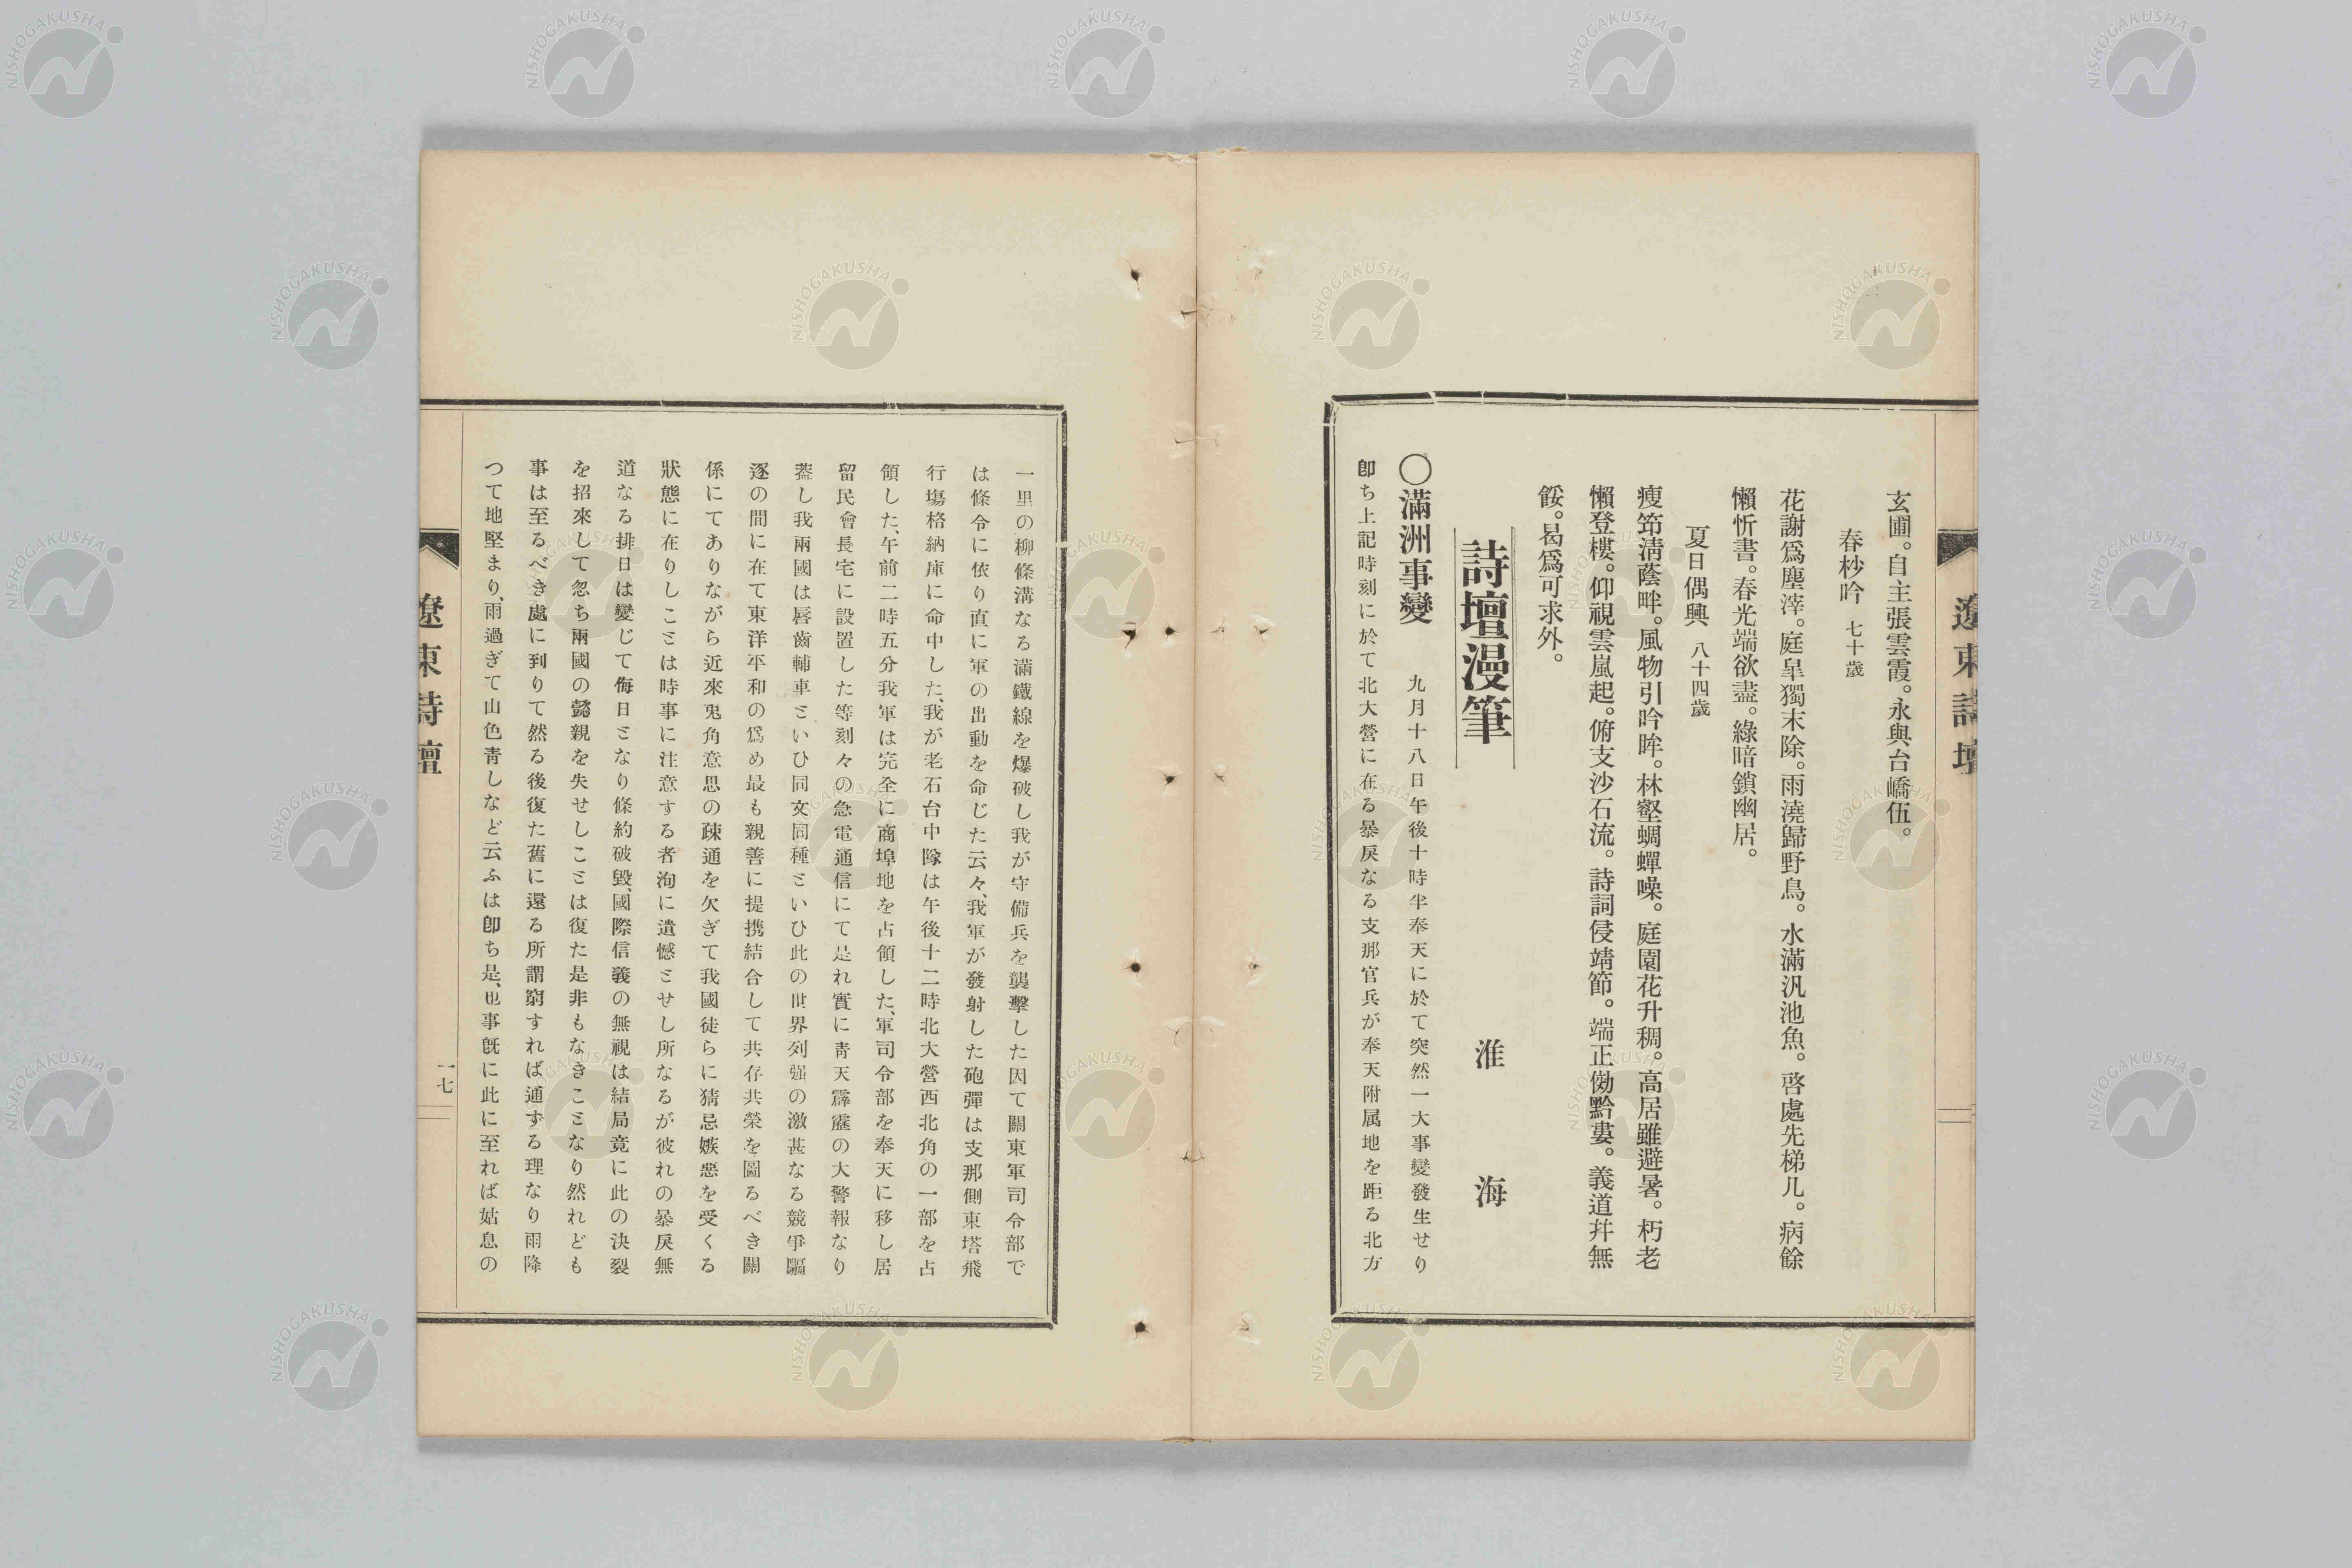 遼東詩壇
玄圃。自主張雲霞。永與台嶠伍。
春杪吟 七十歲
花謝爲塵滓。庭皐獨末除。雨澆歸野鳥。水滿汎池魚。啓處先梯几。病餘
懶忻書。春光端欲盡。綠暗鎖幽居。
夏日偶興 八十四歲
瘦筇淸蔭畔。風物引吟眸。林壑蜩蟬噪。庭園花升稠。高居雖避暑。朽老
懶登樓。仰視雲嵐起。俯支沙石流。詩詞侵靖節。端正俲黔婁。義道幷無
餒。曷爲可求外。
詩壇漫筆
淮海
〇滿洲事變 九月十八日午後十時半奉天に於て突然一大事變發生せり
卽ち上記時刻に於て北大營に在る暴戾なる支那官兵が奉天附属地を距る北方
一里の柳條溝なる滿鐵線を爆破し我が守備兵を襲擊した因て關東軍司令部で
は條令に依り直に軍の出動を命じた云々、我軍が發射した砲彈は支那側東塔飛
行塲格納庫に命中した、我が老石台中隊は午後十二時北大營西北角の一部を占
領した、午前二時五分我軍は完全に商埠地を占領した、軍司令部を奉天に移し居
留民會長宅に設置した等刻々の急電通信にて是れ實に靑天霹靂の大警報なり
蓋し我兩國は唇齒輔車といひ同文同種といひ此の世界列强の激甚なる競爭驅
逐の間に在て東洋平和の爲め最も親善に提携結合して共存共榮を圖るべき關
係にてありながら近來兎角意思の疎通を欠ぎて我國徒らに猜忌嫉惡を受くる
狀態に在りしことは時事に注意する者洵に遺憾とせし所なるが彼れの暴戾無
道なる排日は變じて侮日となり條約破毀、國際信義の無視は結局竟に此の決裂
を招來して忽ち兩國の懿親を失せしことは復た是非もなきことなり然れども
事は至るべき處に到りて然る後復た舊に還る所謂窮すれば通ずる理なり雨降
つて地堅まり、雨過ぎて山色靑しなど云ふは卽ち是、也事旣に此に至れば姑息の
遼東詩壇
一七
NISHOGAKUSHA